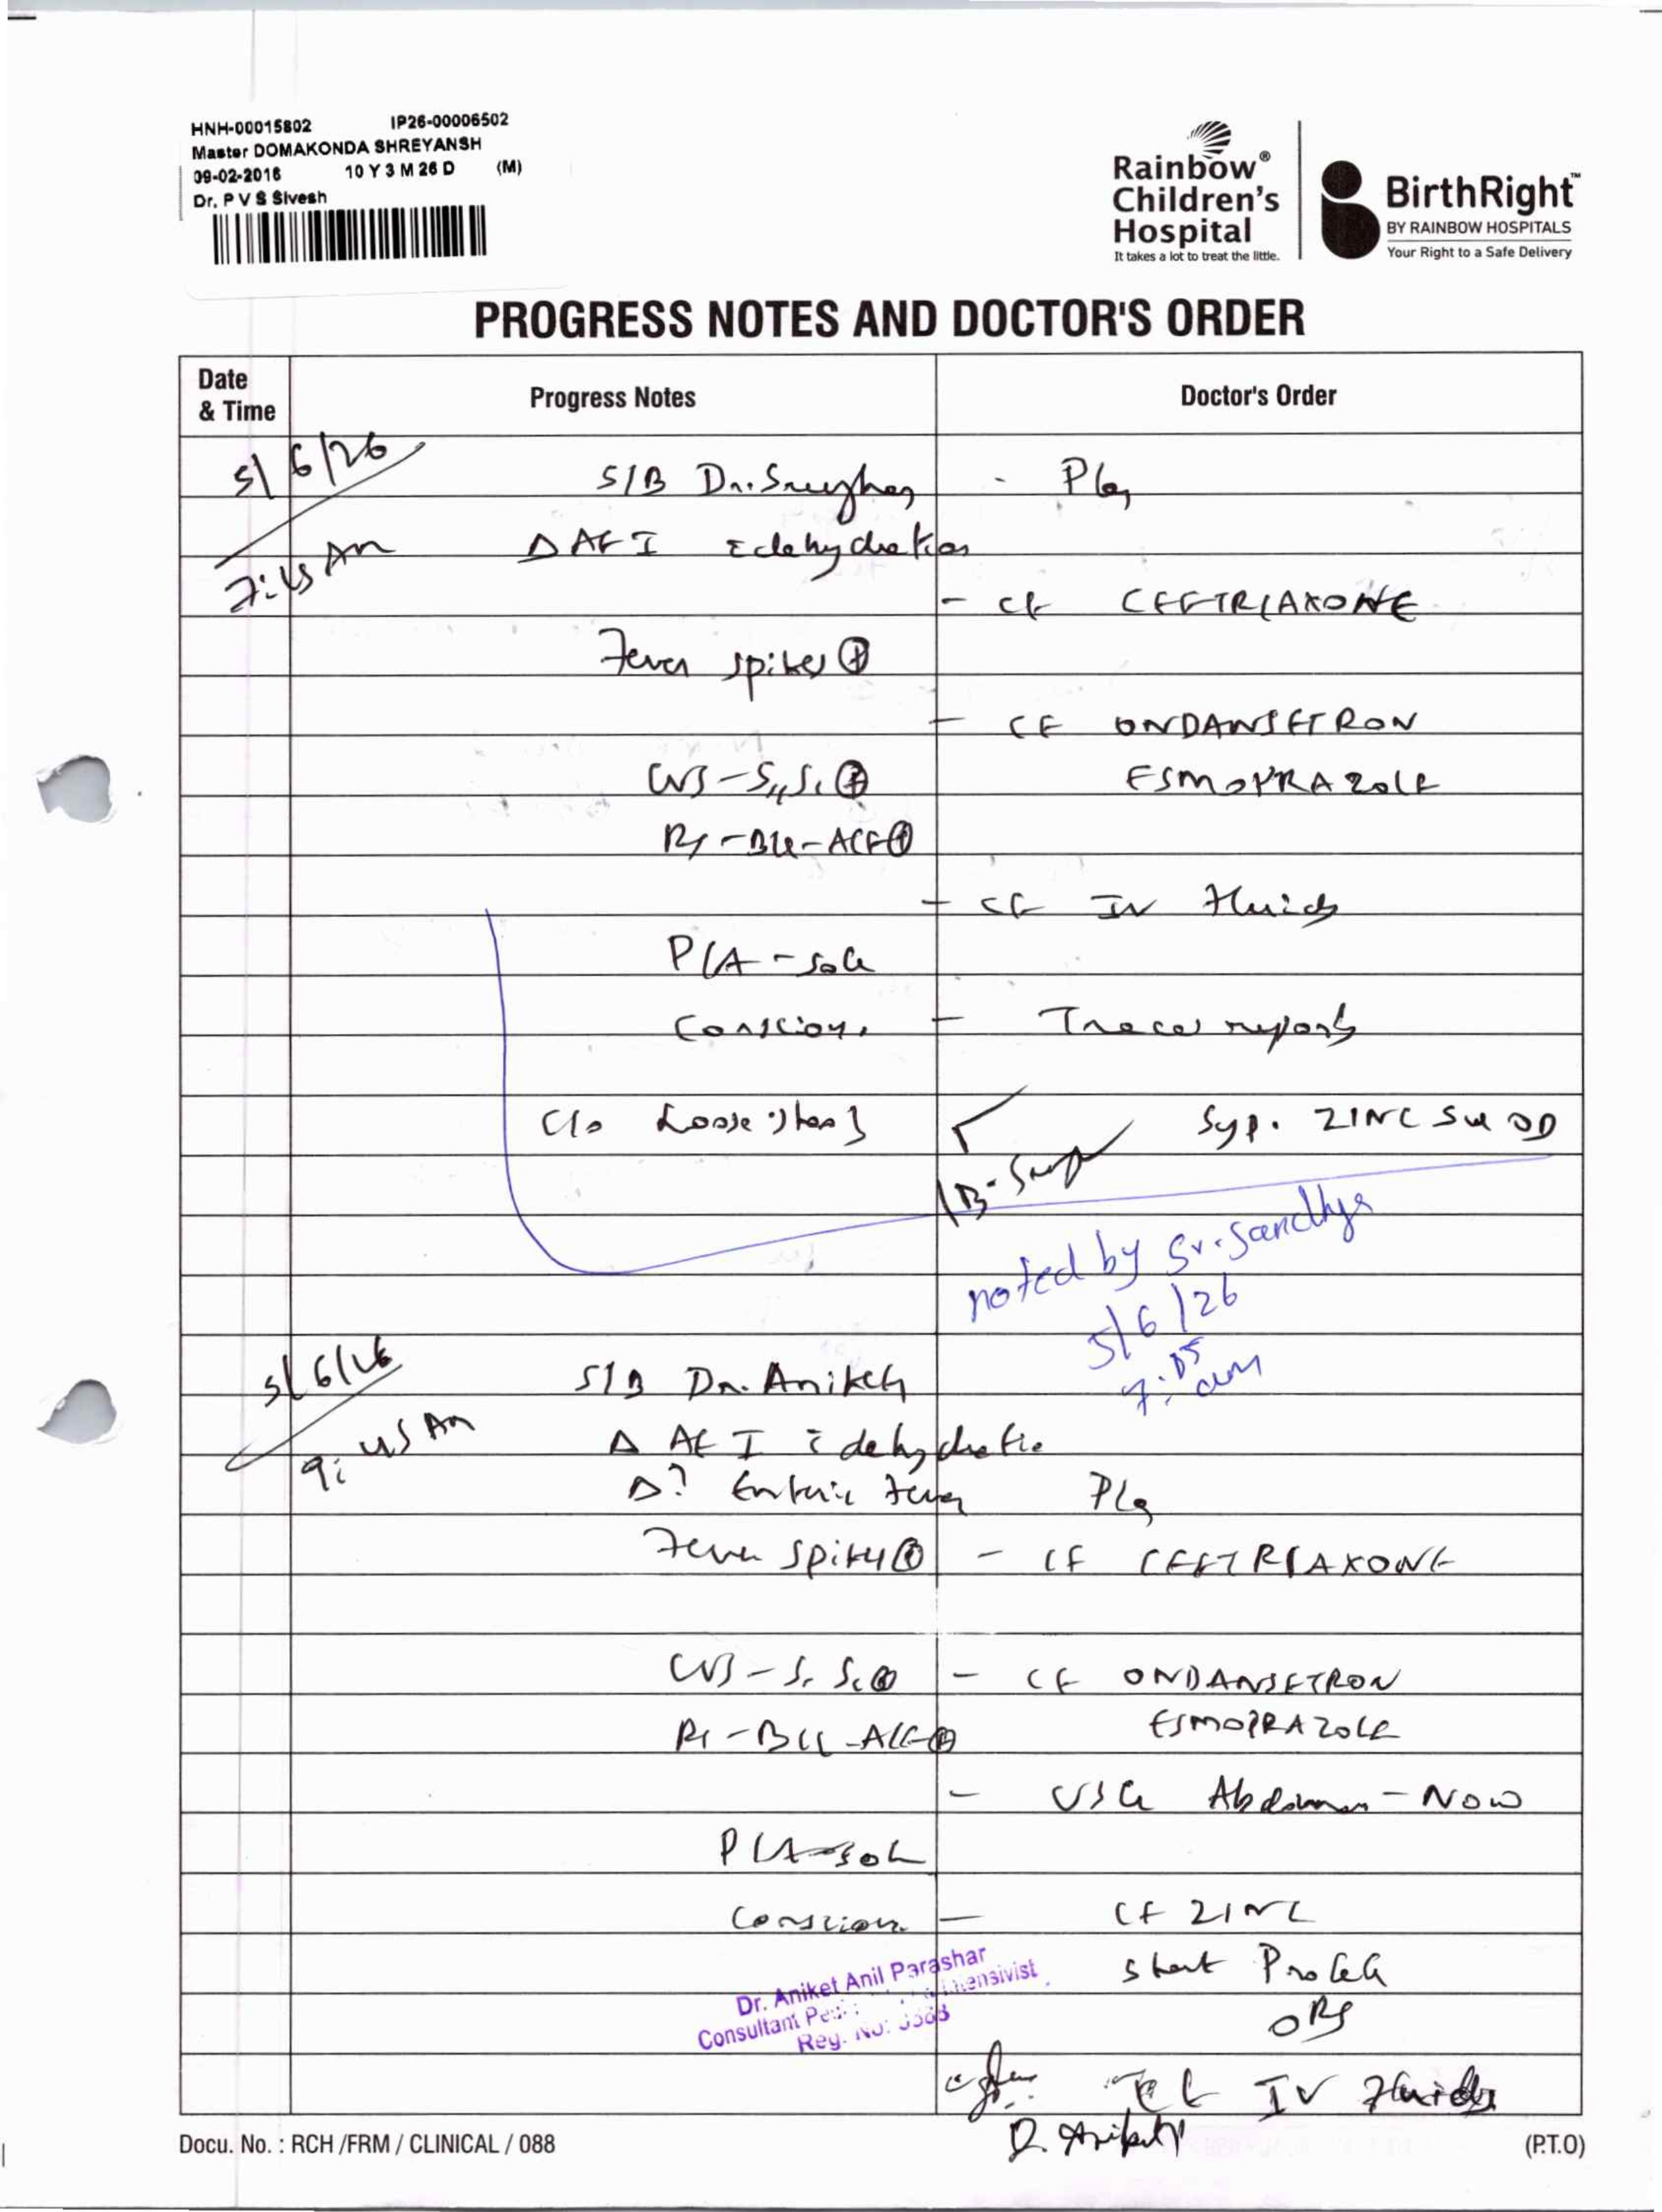 HNH-00015802 IP26-00006502
Master DOMAKONDA SHREYANSH
09-02-2016 10 Y 3 M 26 D (M)
Dr. P V S Sivesh
Rainbow®
Children's
Hospital
It takes a lot to treat the little.
BirthRight™
BY RAINBOW HOSPITALS
Your Right to a Safe Delivery
PROGRESS NOTES AND DOCTOR'S ORDER
Date
& Time
Progress Notes
Doctor's Order
5/6/26
S/B Dr.
Δ AFI c dehydration
- CF CEFTRIAXONE
Fever spikes +
- CF ONDANSETRON
ESMOPRAZOLE
CVS - S1, S2 +
RS - BLE - +
- CF IV fluids
P/A - soft
Conscious
- Trace reports
C/o Loose stools
Syp. ZINC OD
noted by Sr. Sandhya
5/6/26
am
5/6/26
9:45 AM
S/B Dr. Aniket
Δ AFI c dehydration
Δ? Enteric fever
Plan
Fever spikes +
- CF CEFTRIAXONE
CVS - S1 S2 +
- CF ONDANSETRON
ESMOPRAZOLE
- USG Abdomen - NOW
P/A - soft
Conscious
- CF ZINC
start
ORS
IV Fluids
Dr. Aniket Anil Parashar
Consultant
Reg. No:
D. Aniket
Docu. No. : RCH /FRM / CLINICAL / 088
(P.T.O)